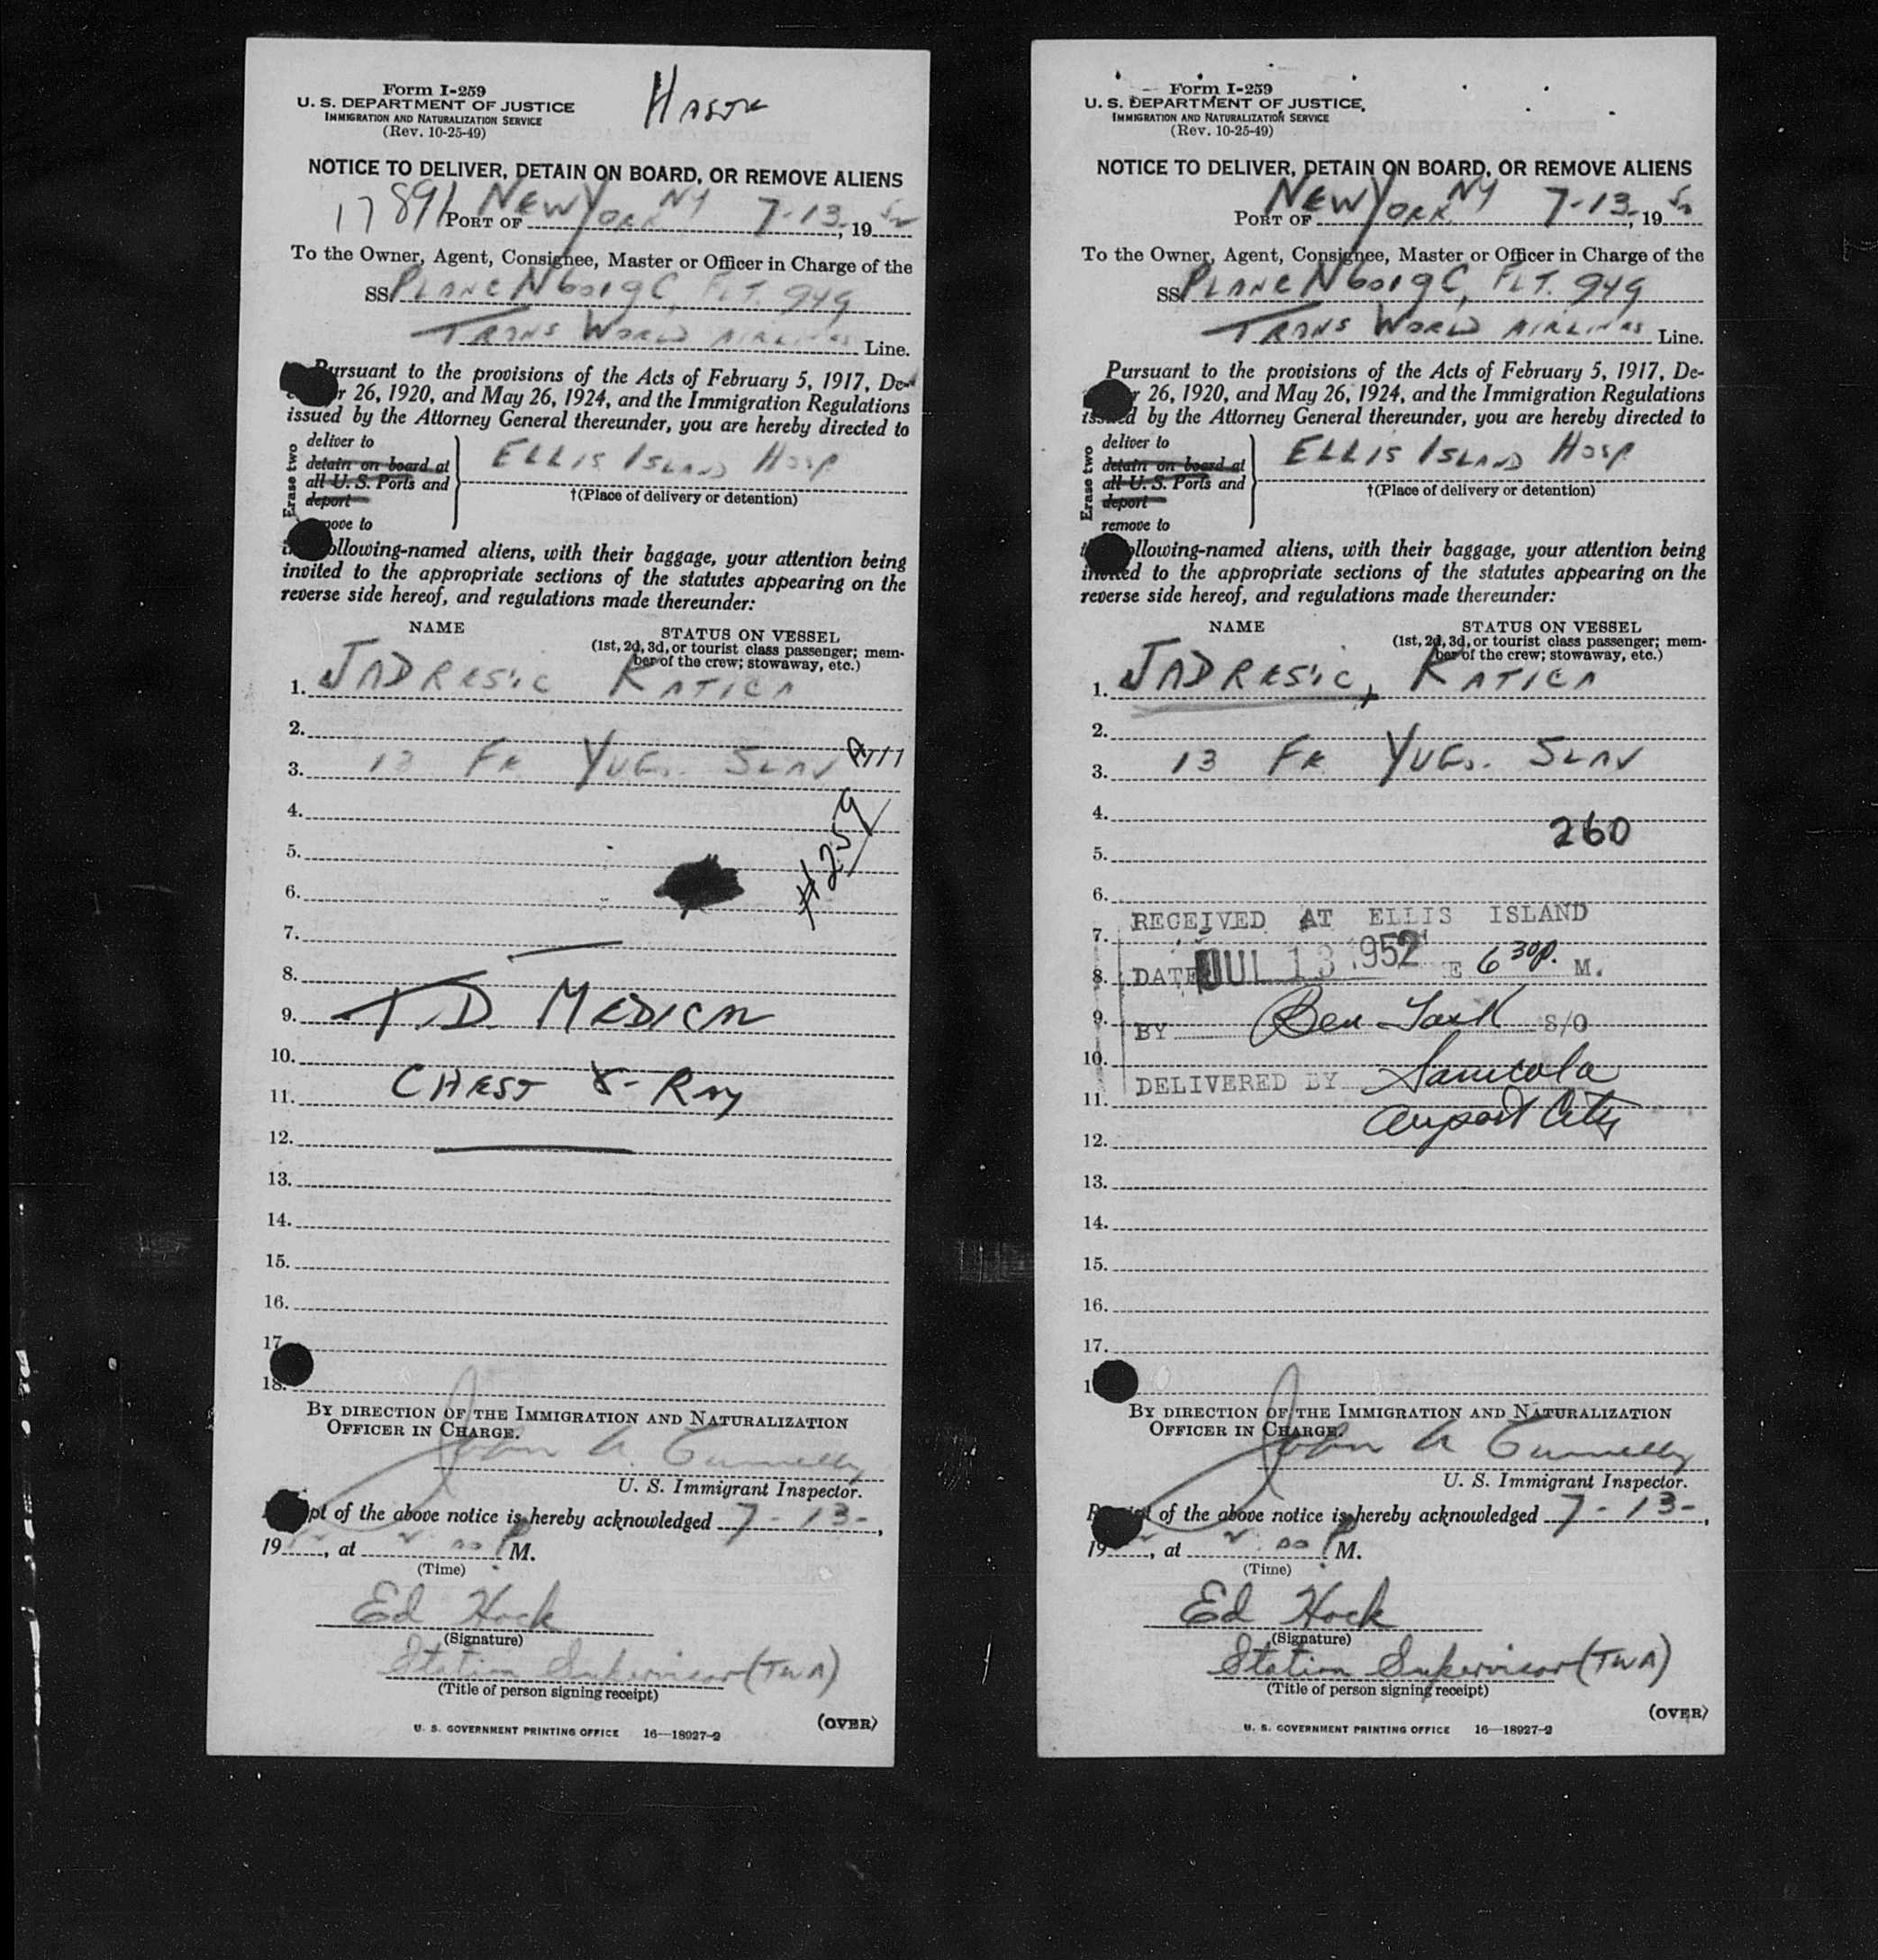 Form I-259
U. S. DEPARTMENT OF JUSTICE
IMMIGRATION AND NATURALIZATION SERVICE
(Rev. 10-25-49)
NOTICE TO DELIVER, DETAIN ON BOARD, OR REMOVE ALIENS
17891 PORT OF NEW YORK NY 7-13-, 1952
To the Owner, Agent, Consignee, Master or Officer in Charge of the
SS PLANE N6019C, FLT. 949
TRANS WORLD AIRLINES Line.
Pursuant to the provisions of the Acts of February 5, 1917, De-
r 26, 1920, and May 26, 1924, and the Immigration Regulations
issued by the Attorney General thereunder, you are hereby directed to
Erase two
deliver to
detain on board at
all U. S. Ports and
deport
move to
ELLIS ISLAND HOSP
†(Place of delivery or detention)
ollowing-named aliens, with their baggage, your attention being
invited to the appropriate sections of the statutes appearing on the
reverse side hereof, and regulations made thereunder:
NAME STATUS ON VESSEL
(1st, 2d, 3d, or tourist class passenger; mem-
ber of the crew; stowaway, etc.)
1. JADRESIC KATICA
2.
3. 13 FR YUGO. SLAV
4.
#259
5.
6.
7.
8.
9. T.D. MEDICAL
10.
11. CHEST X-RAY
12.
13.
14.
15.
16.
17.
18.
BY DIRECTION OF THE IMMIGRATION AND NATURALIZATION
OFFICER IN CHARGE.
John A.
U. S. Immigrant Inspector.
pt of the above notice is hereby acknowledged 7-13-,
19, at P M.
(Time)
Ed Hock
(Signature)
Station Supervisor (TWA)
(Title of person signing receipt)
(OVER)
U. S. GOVERNMENT PRINTING OFFICE 16—18927-2
Form I-259
U. S. DEPARTMENT OF JUSTICE
IMMIGRATION AND NATURALIZATION SERVICE
(Rev. 10-25-49)
NOTICE TO DELIVER, DETAIN ON BOARD, OR REMOVE ALIENS
PORT OF NEW YORK NY 7-13-, 1952
To the Owner, Agent, Consignee, Master or Officer in Charge of the
SS PLANE N6019C, FLT. 949
TRANS WORLD AIRLINES Line.
Pursuant to the provisions of the Acts of February 5, 1917, De-
r 26, 1920, and May 26, 1924, and the Immigration Regulations
issued by the Attorney General thereunder, you are hereby directed to
Erase two
deliver to
detain on board at
all U. S. Ports and
deport
remove to
ELLIS ISLAND HOSP
†(Place of delivery or detention)
ollowing-named aliens, with their baggage, your attention being
invited to the appropriate sections of the statutes appearing on the
reverse side hereof, and regulations made thereunder:
NAME STATUS ON VESSEL
(1st, 2d, 3d, or tourist class passenger; mem-
ber of the crew; stowaway, etc.)
1. JADRESIC, KATICA
2.
3. 13 FR YUGO. SLAV
4.
260
5.
6.
RECEIVED AT ELLIS ISLAND
7.
8. DATE JUL 13 1952 E 6 30 P. M.
9. BY Ben S/O
10.
DELIVERED BY Sanicola
11.
Airport City
12.
13.
14.
15.
16.
17.
1
BY DIRECTION OF THE IMMIGRATION AND NATURALIZATION
OFFICER IN CHARGE.
John A
U. S. Immigrant Inspector.
of the above notice is hereby acknowledged 7-13-,
19, at P M.
(Time)
Ed Hock
(Signature)
Station Supervisor (TWA)
(Title of person signing receipt)
(OVER)
U. S. GOVERNMENT PRINTING OFFICE 16—18927-2